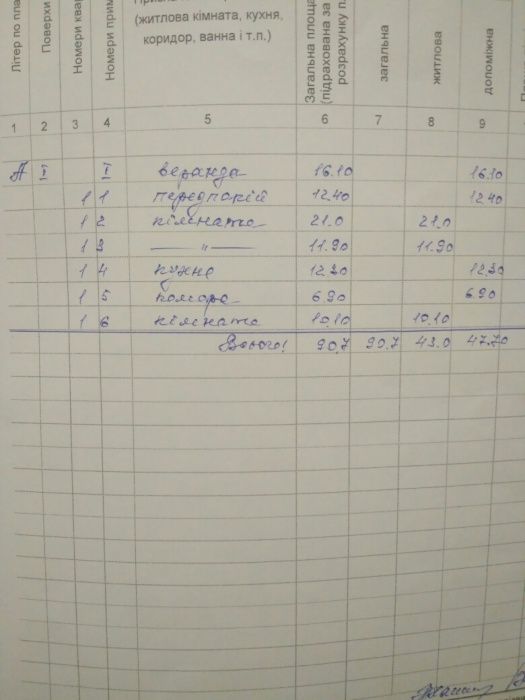 Літер по пла
Поверхи
Номери ква
Номери прим
(житлова кімната, кухня,
коридор, ванна і т.п.)
Загальна площа
(підрахована за
розрахунку п.
загальна
житлова
допоміжна
1 2 3 4 5 6 7 8 9
А I I веранда 16.10 16.10
1 1 передпокій 12.40 12.40
1 2 кімната 21.0 21.0
1 3 —"— 11.90 11.90
1 4 кухня 12.20 12.20
1 5 комора 6.90 6.90
1 6 кімната 10.10 10.10
Всього! 90,7 90,7 43.0 47.70